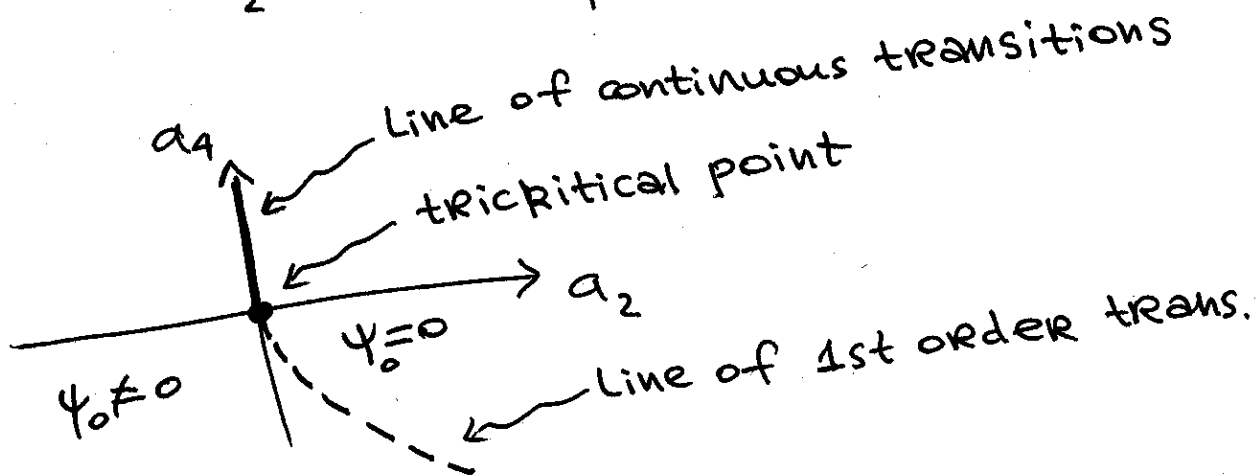 2
Line of continuous transitions
a₄
trickitical point
a₂
ψ₀=0
ψ₀≠0
Line of 1st order trans.